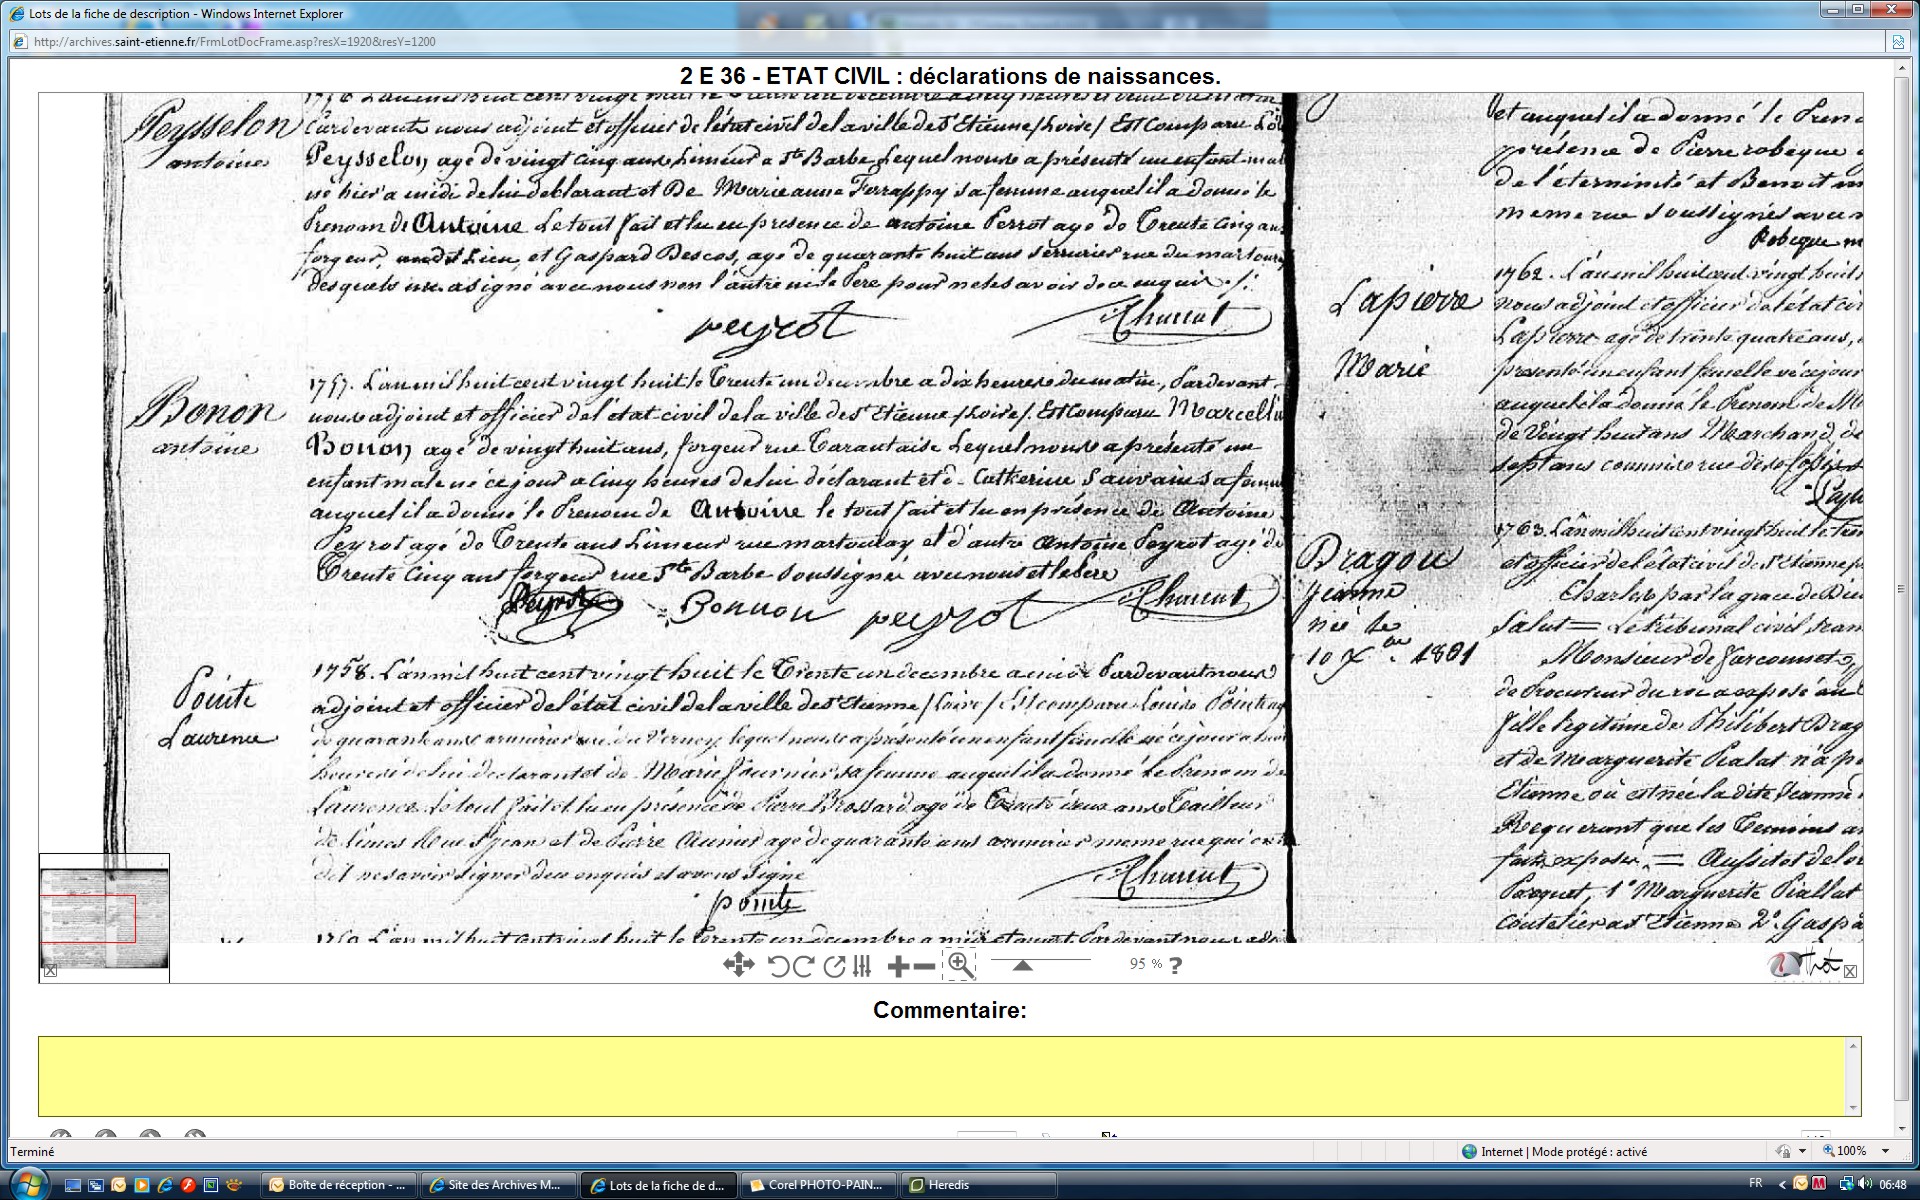 Lots de la fiche de description - Windows Internet Explorer
http://archives.saint-etienne.fr/FrmLotDocFrame.asp?resX=1920&resY=1200
2 E 36 - ETAT CIVIL : déclarations de naissances.
Peysselon
antoine
Pardevant nous adjoint et officier de l'état civil de la ville de St Etienne /Loire/ Est Comparu
Peysselon, agé de vingt cinq ans Limeur a Ste Barbe Lequel nous a présenté un enfant male
né hier a midi de lui déclarant et De Marie anne Ferrappy sa femme auquel il a donné le
Prenom de Antoine Le tout fait et lu en presence de antoine Perrot agé de Trente Cinq ans
forgeur, et Gaspard Descos, agé de quarante huit ans serrurier rue du
desquels a signé avec nous non l'autre ni le Pere pour ne le savoir de ce enquis ./.
peyrot Thuict
Bonon
antoine
1757. L'an mil huit cent vingt huit le Trente un decembre a dix heures du matin, Pardevant
nous adjoint et officier de l'état civil de la ville de St Etienne /Loire/. Est Comparu Marcellin
Bonon, agé de vingt huit ans, forgeur rue Tarantaise Lequel nous a présenté un
enfant male né ce jour a Cinq heures de lui déclarant et d Catherine Sauvain sa femme
auquel il a donné le Prenom de Antoine le tout fait et lu en présence de Antoine
Peyrot agé de Trente ans Limeur rue martouray et d'autre Antoine Peyrot agé de
Trente Cinq ans forgeur rue Ste Barbe Soussignés avec nous et le Pere
Peyrot Bonnon peyrot
Pointe
Laurence
1758. L'an mil huit cent vingt huit le Trente un decembre a midi Pardevant nous
adjoint et officier de l'état civil de la ville de St Etienne /Loire/ Est comparu Louis Pointe
de quarante ans armurier rue du Vernay, lequel nous a présenté un enfant femelle né ce jour a
heures de lui declarant et de Marie fournier sa femme auquel il a donné le Prenom de
Laurence Le tout fait et lu en présence de Pierre Brossard agé de Trente deux ans Tailleur
de limes Rue St Jean et de Pierre agé de quarante ans armurier meme rue qui ont
dit ne savoir signer de ce enquis et avons signé
pointe
et auquel il a donné le Preno
présence de Pierre robeque
de l'éterninité et Benoit
meme rue soussignés avec
Robeque
Lapierre
Marie
1762. L'an mil huit cent vingt huit
nous adjoint et officier de l'état ci
Lapierre agé de trente quatre ans,
présenté un enfant femelle né ce jour
auquel il a donné le Prenom de M
de Vingt huit ans Marchand, de
sept ans commis rue
Dragou
Jeanne
née le
10 Xbre 1801
1763. L'an mil huit cent vingt huit le
et officier de l'état civil de St Etienne
Charles par la grace de Dieu
Salut = Le tribunal civil,
Monsieur de
de Procureur du roi a exposé
fille légitime de Philibert Drag
et de Marguerite Pialat n'a
Etienne où est née la dite Jeanne
Requerant que les Temoins
fait exposé, = Aussitot
Parquet, 1° Marguerite Piallat
coutelier a St Etienne 2° Gaspa
95 % ?
Commentaire:
Terminé
Internet | Mode protégé : activé
100%
Boîte de réception - ...
Site des Archives M...
Lots de la fiche de d...
Corel PHOTO-PAIN...
Heredis
FR
06:48